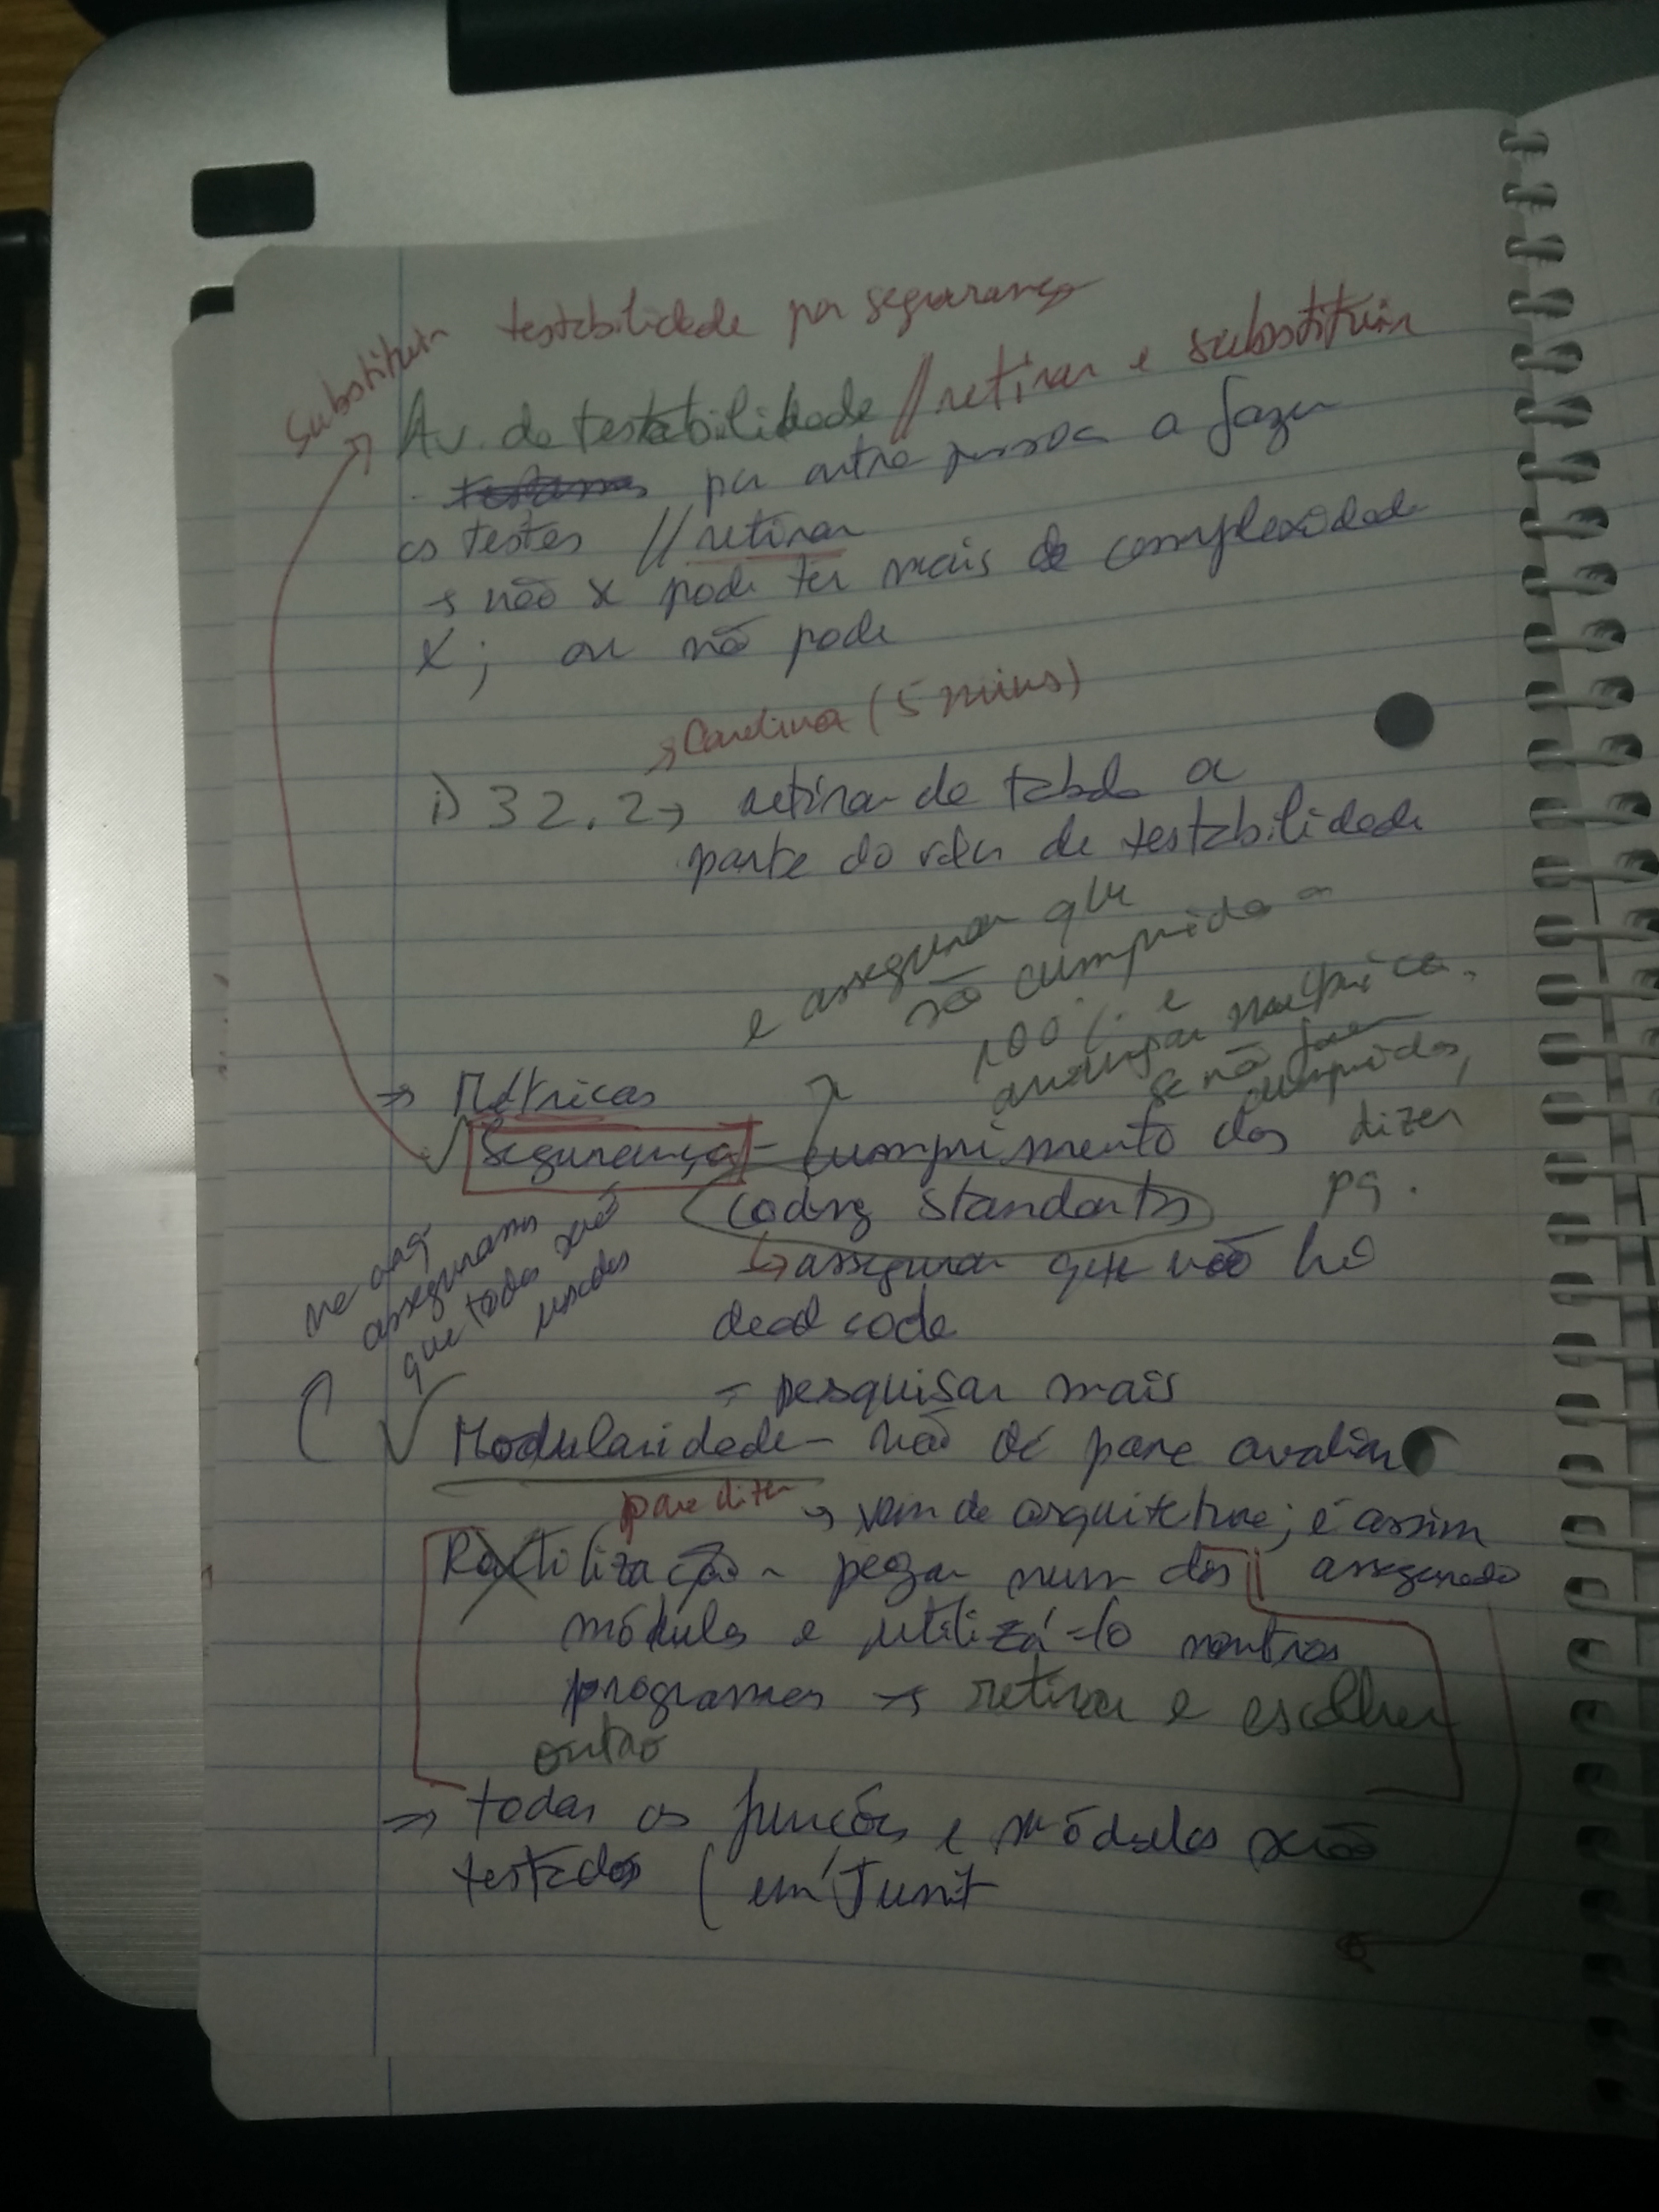 Substituir testabilidade por segurança
Av. de testabilidade // retirar e substituir
por outra pessoa a fazer
os testes // retirar
→ não x pode ter mais de complexidade
x; ou não pode
→ Carolina (5 mins)
1) 32.2 → retirar da tabela a
parte do valor de testabilidade
e assegurar que
são cumpridos a
100% e
avançar na métrica.
se não forem
cumpridos,
dizer
pq.
→ Métricas
✓ Segurança - cumprimento dos
coding standarts
↳ assegurar que não há
dead code
- pesquisar mais
na arq
asseguramos
que todos são
usados
✓ Modularidade - não é para avaliar
para dizer → vem da arquitetura; é assim
assegurado
Reutilização - pegar num dos
módulos e utilizá-lo noutros
programas → retirar e escolher
outro
⇒ todas as funções e módulos são
testados (em Junit